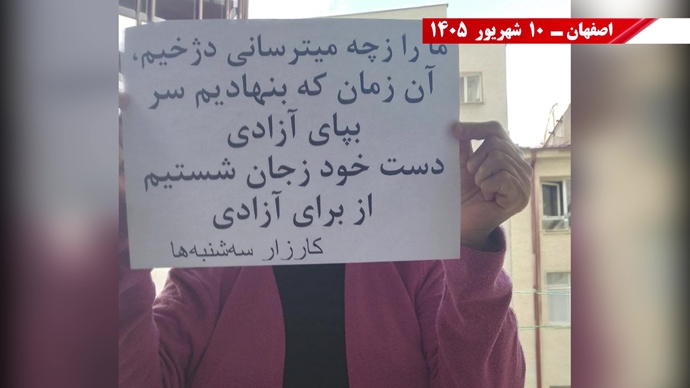 اصفهان ـ ۱۰ شهریور ۱۴۰۵
ما را زچه میترسانی دژخیم،
آن زمان که بنهادیم سر
بپای آزادی
دست خود زجان شستیم
از برای آزادی
کارزار سه‌شنبه‌ها